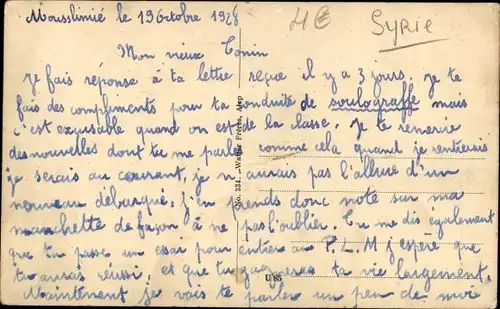 Mousslinié le 19 Octobre 1928
4€
SYRIE
Mon vieux Tonin
Je fais réponse à ta lettre reçue il y a 3 jours. Je te
fais des compliments pour ta conduite de soulograffe mais
c'est excusable quand on est de la classe. Je te remercie
des nouvelles dont tu me parles comme cela quand je rentrerais
je serais au courant, je n'aurais pas l'allure d'un
nouveau débarqué, j'en prends donc note sur ma
manchette de façon à ne pas l'oublier. Tu me dis également
que tu passe un essai pour entrer au P.L.M j'espère que
tu auras réussi, et que tu gagneras ta vie largement.
Maintenant je vais te parler un peu de moi
No. 234. Wattar Frères, Alep
U 85